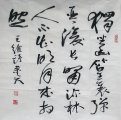 獨坐幽篁里彈
琴復長嘯深林
人不知明月來相
照
王維詩